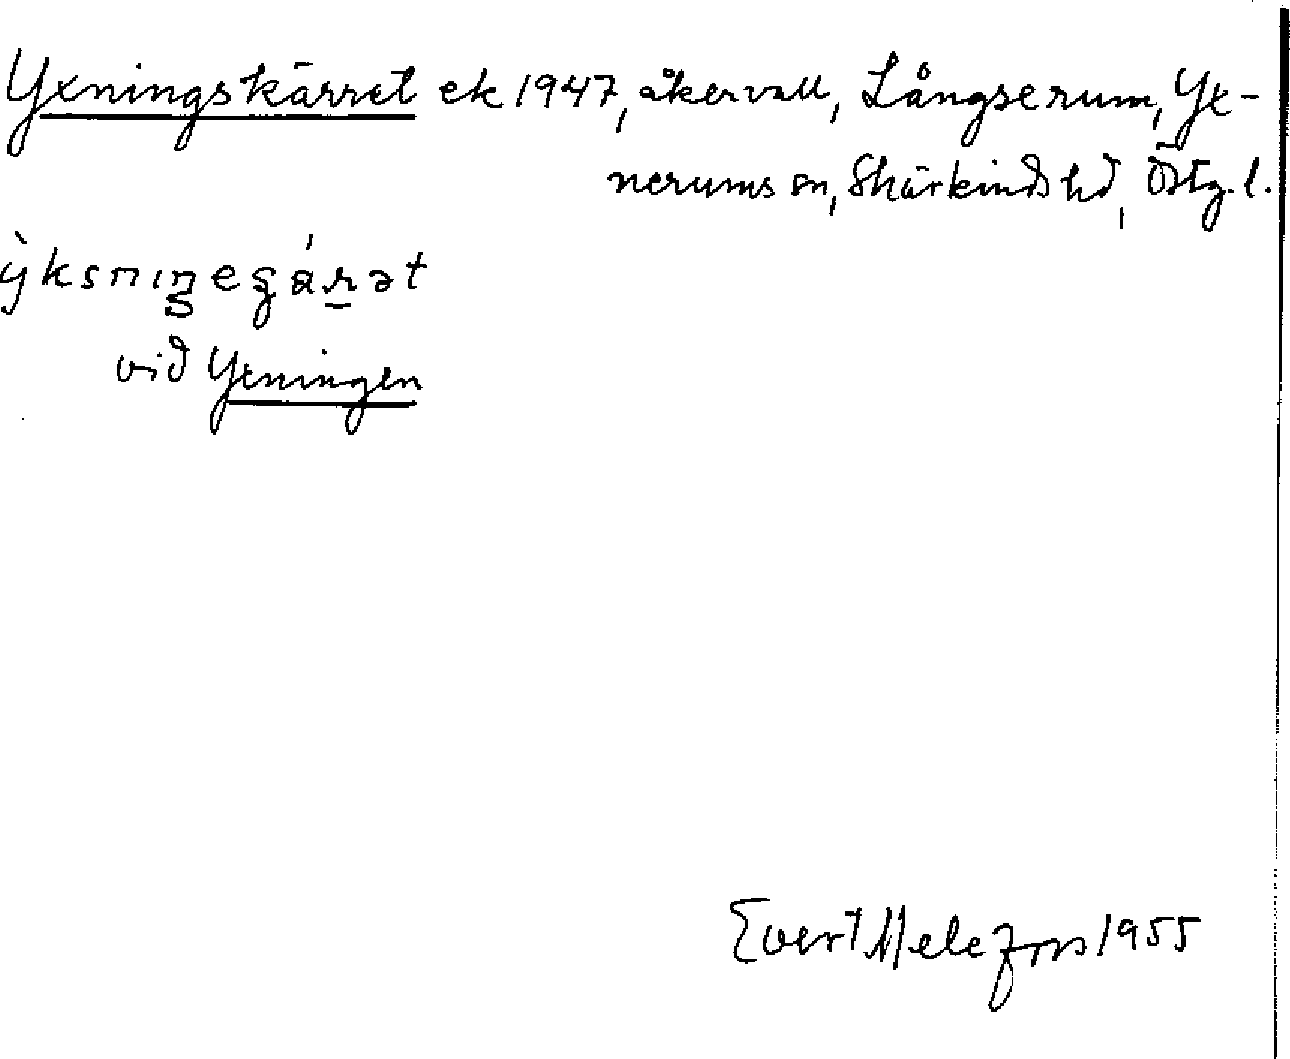 Yxningskärret ek 1947, åkervall, Långserum, Yx-
nerums sn, Skärkinds hd, Östg. l.
vid Yxningen
Evert Melefors 1955